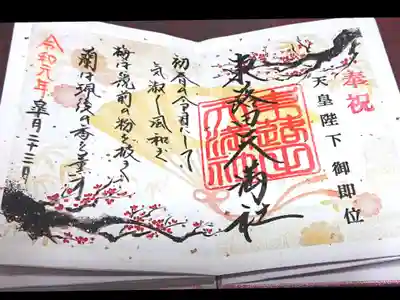 奉祝
天皇陛下 御即位
東路 天満社
初春の令月にして
気淑く風和ぎ
梅は鏡前の粉を披き
蘭は珮後の香を薫す
令和元年 皐月二十三日